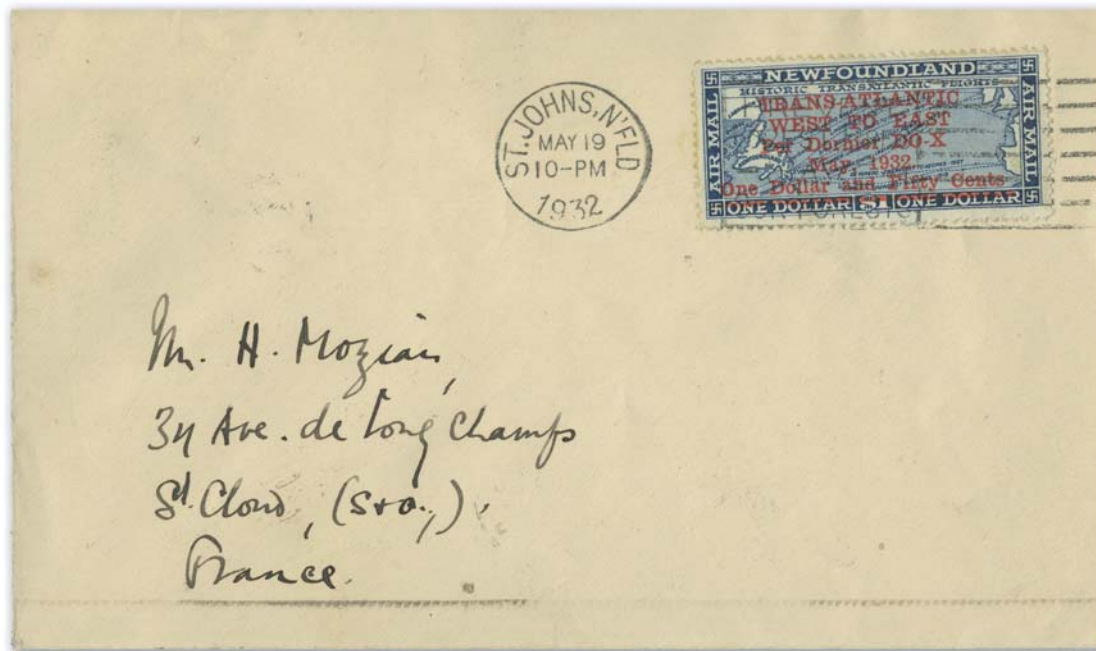 ST. JOHNS, N'FLD
MAY 19
10-PM
1932
NEWFOUNDLAND
HISTORIC TRANSATLANTIC FLIGHTS
AIR MAIL
AIR MAIL
TRANS-ATLANTIC
WEST TO EAST
Per Dornier DO-X
May, 1932.
One Dollar and Fifty Cents
ONE DOLLAR $1 ONE DOLLAR
Mr. H. Mozian,
34 Ave. de Long Champs
St. Cloud, (S+O.,).
France.